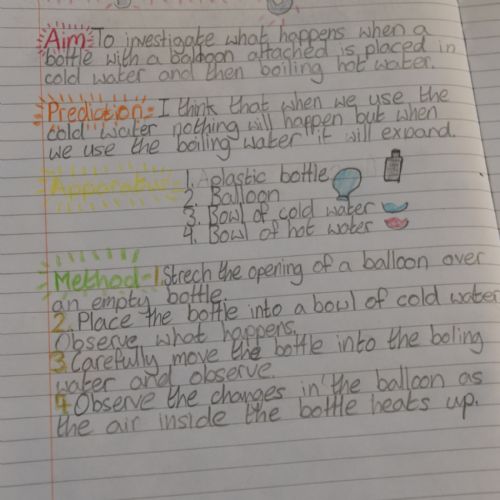 Aim: To investigate what happens when a
bottle with a balloon attached is placed in
cold water and then boiling hot water.
Prediction - I think that when we use the
cold water nothing will happen but when
we use the boiling water it will expand.
Apparatus - 1. plastic bottle
2. Balloon
3. Bowl of cold water
4. Bowl of hot water
Method - 1. Strech the opening of a balloon over
an empty bottle.
2. Place the bottle into a bowl of cold water
Observe what happens.
3. Carefully move the bottle into the boling
water and observe.
4. Observe the changes in the balloon as
the air inside the bottle heats up.